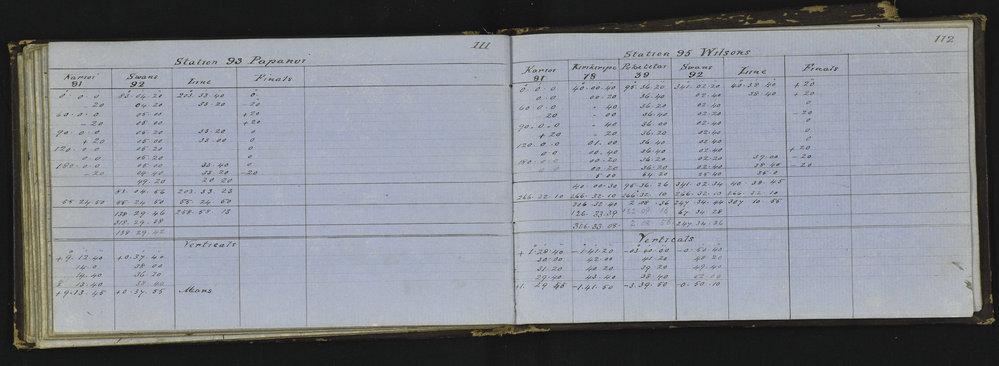 111
Station 93 Papanui
Karioi Swans Line Finals
91 92
0. 0. 0 83.04.20 203.33.40 0
-20 04.20 33.20 -20
60.0.0 05.00 +20
-20 05.00 +20
90.0.0 05.20 33.20 0
+20 05.00 33.00 0
120.0.0 05.00 0
0.0 05.20 0
180.0.0 05.00 33.40 0
-20 04.40 33.20 -20
49.20 20.20
83.04.56 203.33.25
55.24.50 55.24.50 55.24.50
138.29.46 258.58.15
318.29.38
138.29.42
Verticals
+9.13.40 +0.37.40
14.0 38.00
14.40 36.20
13.40 38.40
+9.13.45 +0.37.55 Means
112
Station 95 Wilsons
Karioi Swans Line Finals
91 78 39 92
0.0.0 40.00.40 95.36.20 341.02.20 40.38.40 +20
0.0 00.20 36.40 02.40 38.40 +20
60.0.0 40 36.20 02.40 0
-20 00 36.40 02.20 -20
90.0.0 40 36.00 02.40 0
+20 20 36.20 02.40 0
120.0.0 01.00 36.40 02.40 0
0.0 00.40 36.40 02.40 +20
180.0.0 00.20 36.20 02.20 39.00 -20
00.20 36.20 02.40 38.40 -20
5.00 64.20 25.40
40.00.30 95.36.26 341.02.34 40.38.45
266.32.10 266.32.10 266.32.10 266.32.10 266.32.10
306.32.40 2.08.36 247.34.44 307.10.55
126.33.39 67.34.28
306.33.09 247.34.36
Verticals
+1.28.40 -1.41.20 -0.50.40
30.20 42.00 41.20
31.20 40.20 39.20 49.40
29.40 43.40 38.40
-1.41.50 -3.39.50 -0.50.10